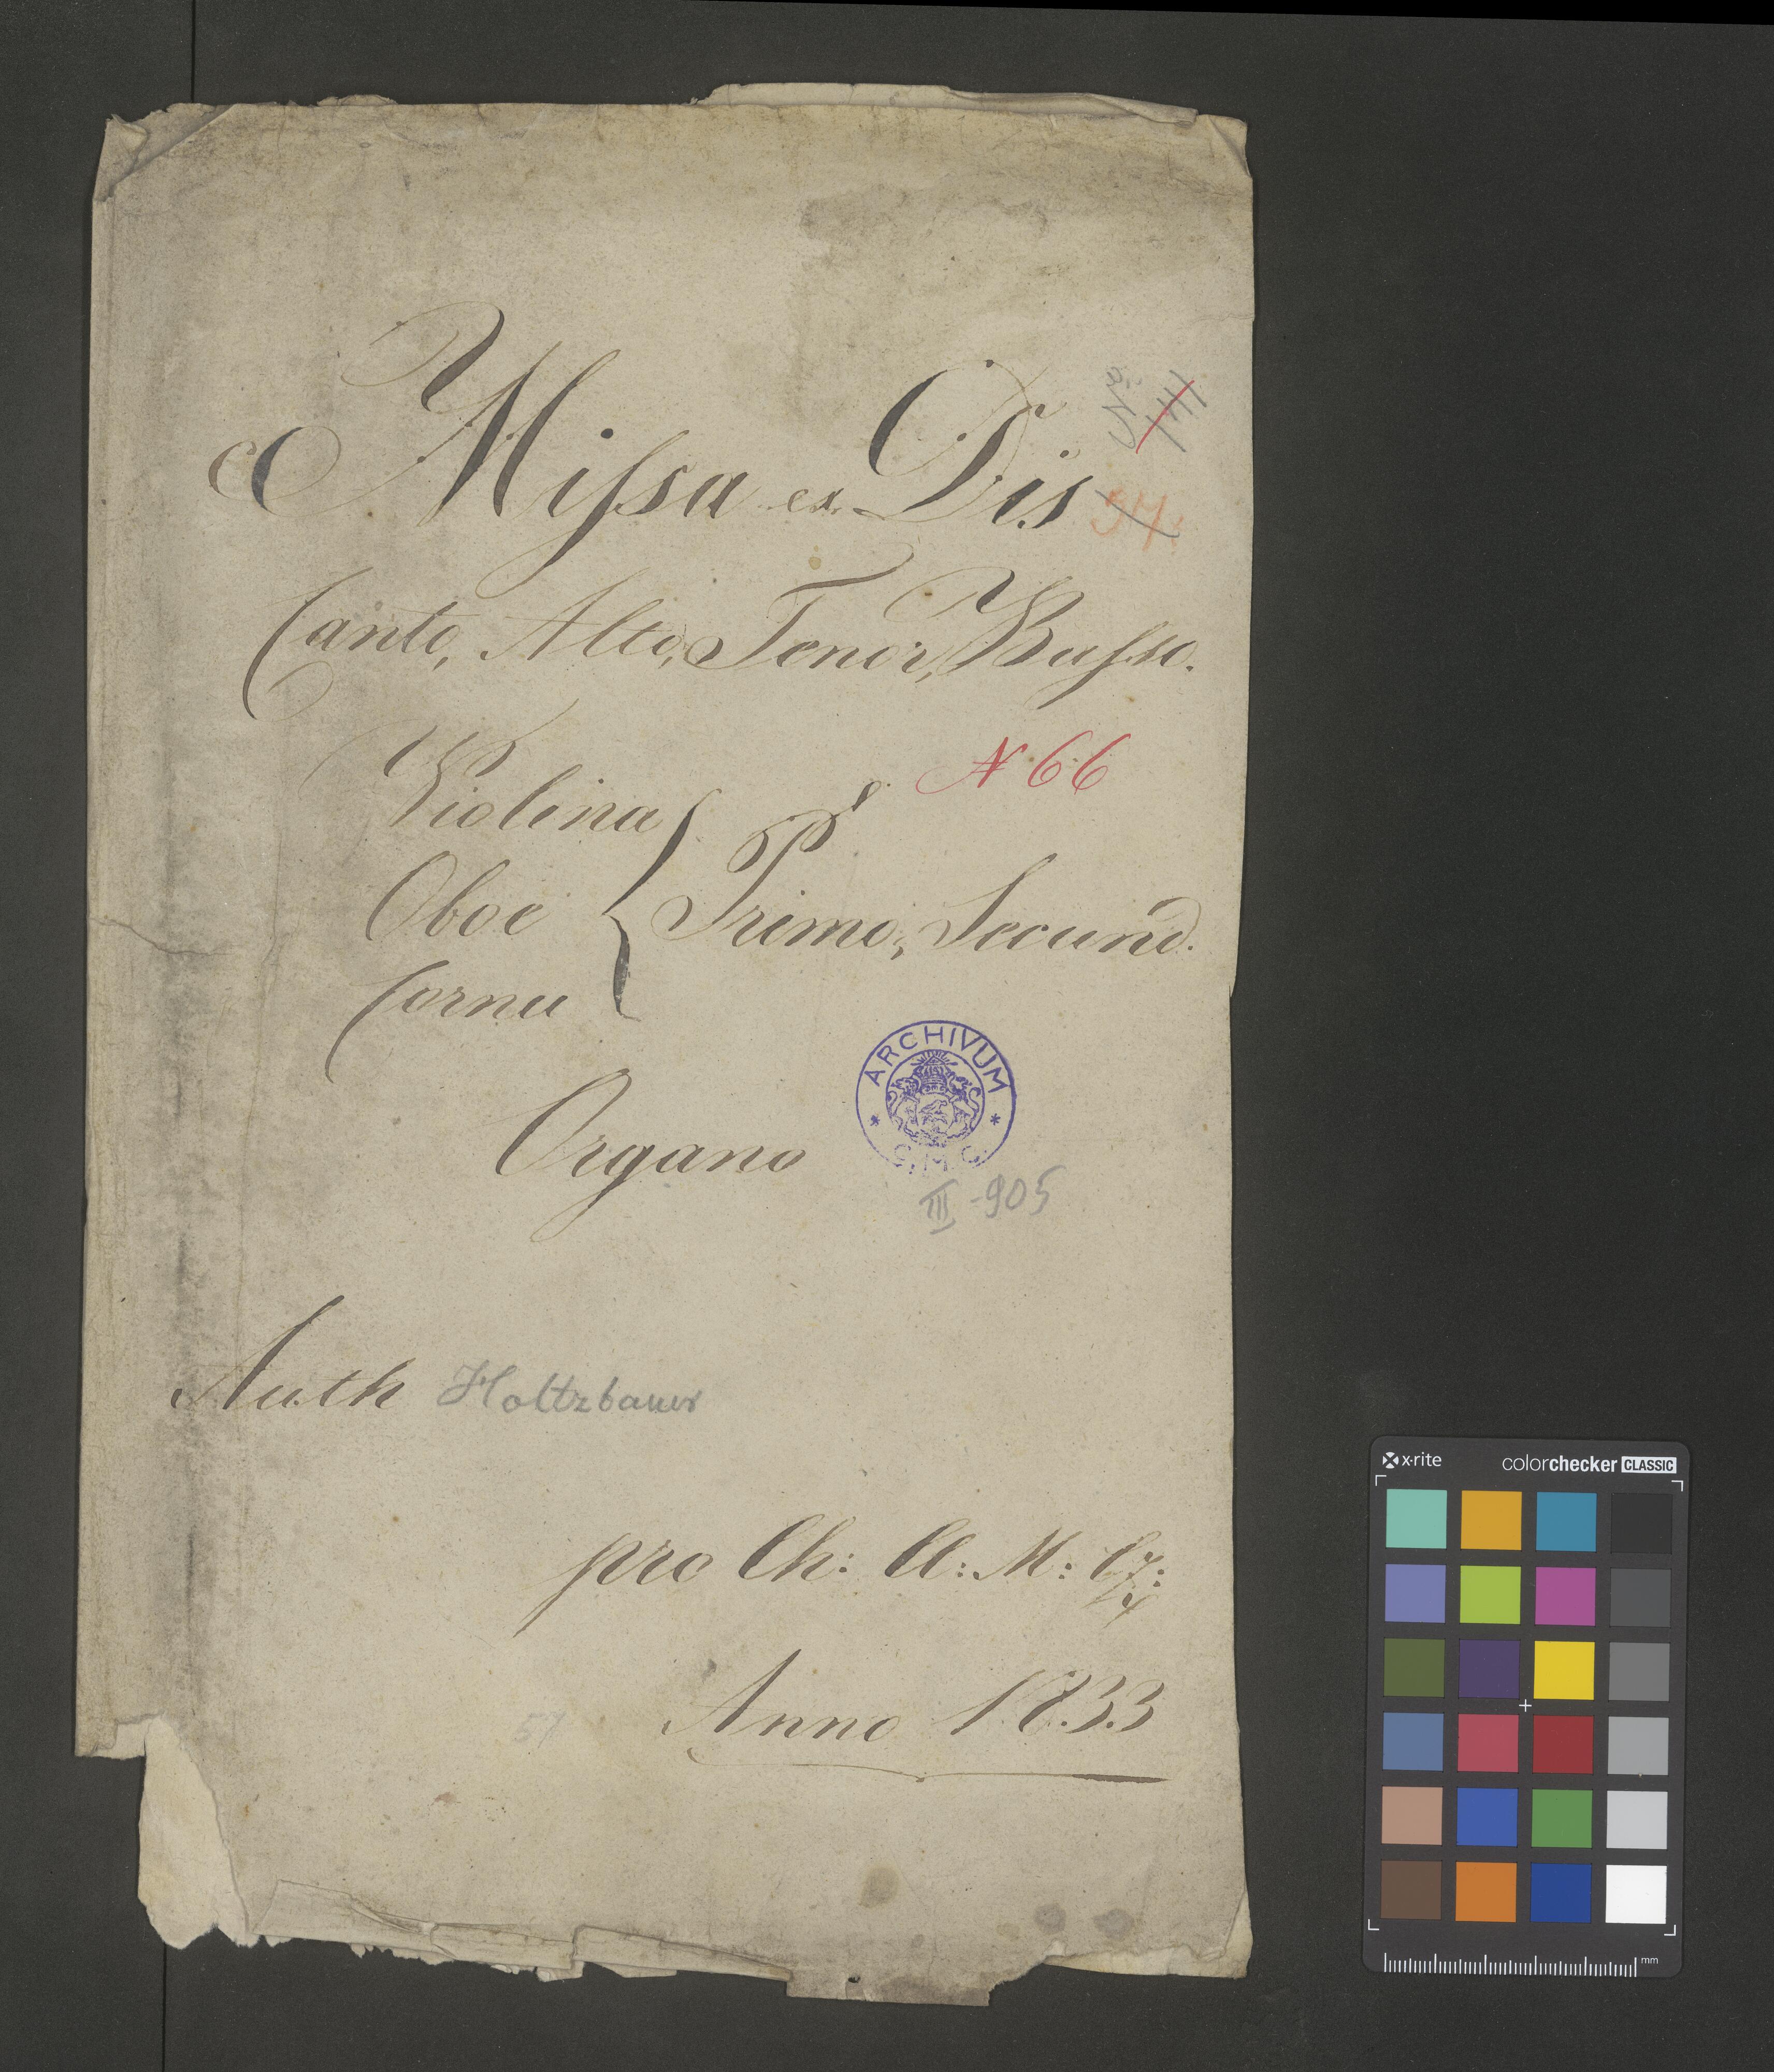 Missa ex Dis
No 141
94.
Canto, Alto, Tenor, Basso.
N 66
Violina
Oboe Primo, Secund.
Cornu
Organo
ARCHIVUM
C. M. C.
III-905
Auth Holtzbauer
pro Ch: Cl: M: Cz:
57
Anno 1833
x·rite
colorchecker CLASSIC
mm